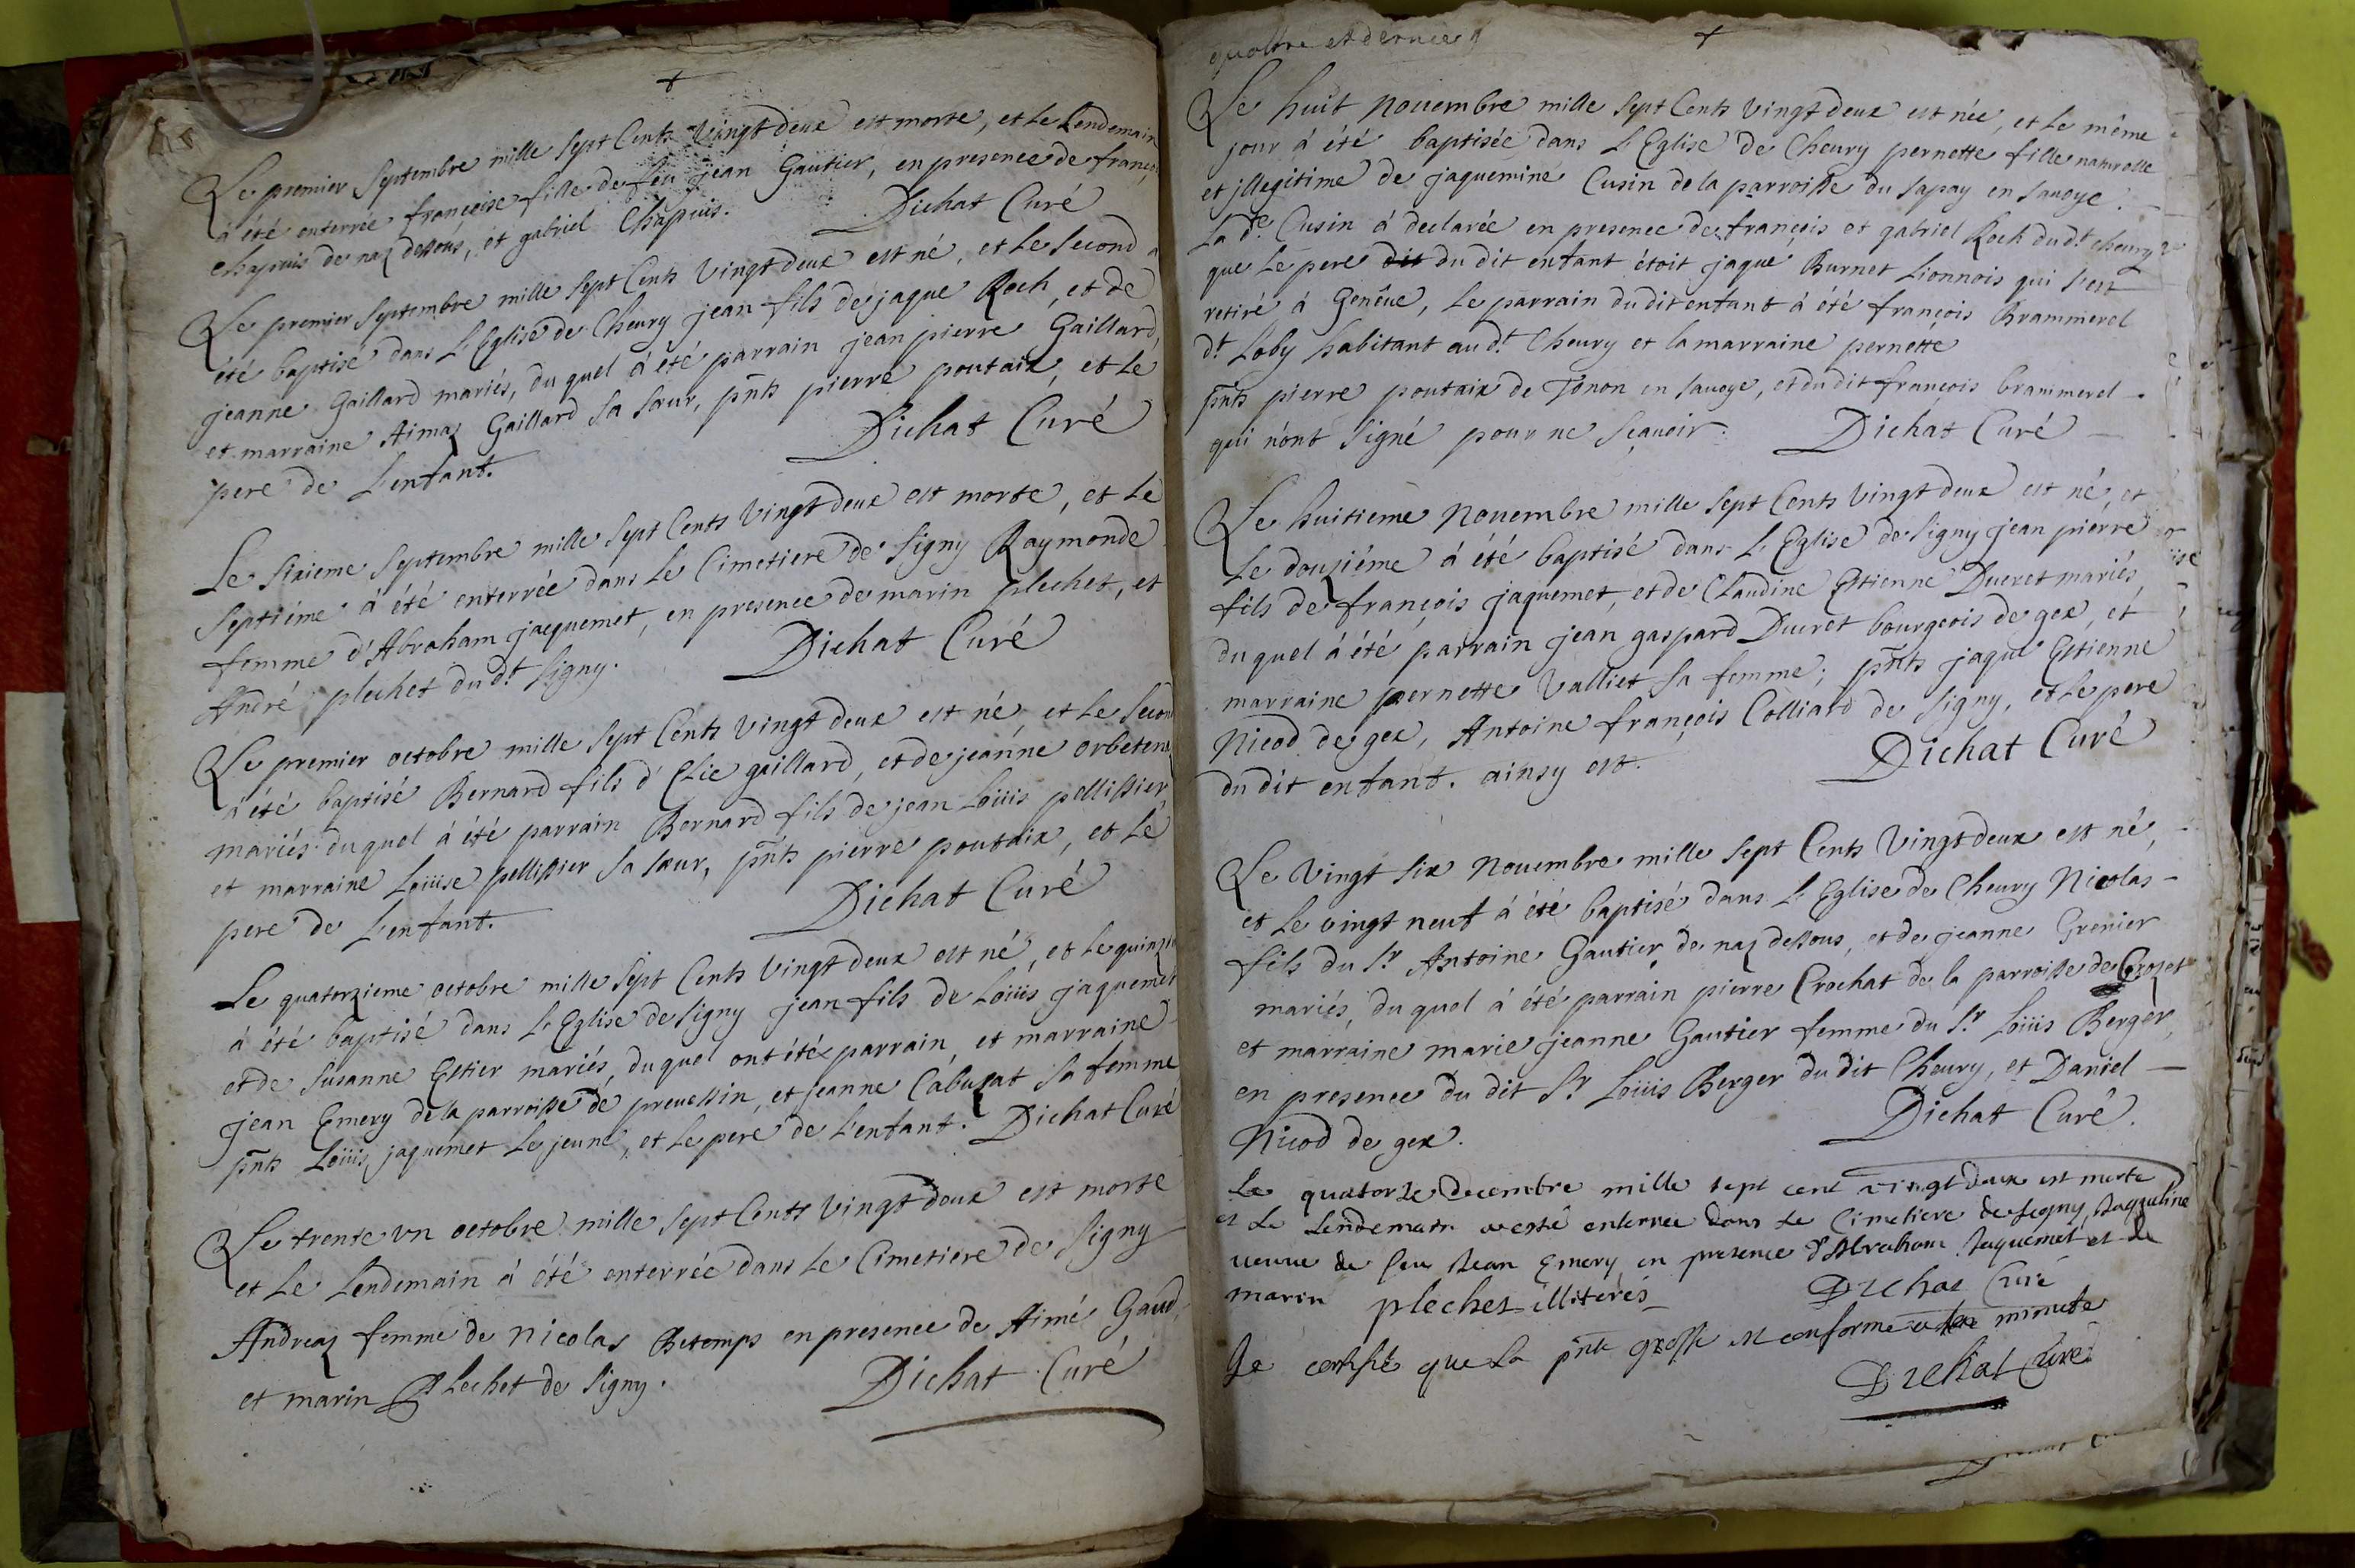 +
Le premier Septembre mille Sept Cents Vingt deux est morte, et le Lendemain
à été enterrée françoise fille de feu jean Gautier, en presence de franç
Chapuis de naz dessous, et gabriel Chapuis. Dichat Curé
Le premier Septembre mille Sept Cents Vingt deux est né, et le Second a
été baptisé dans L'Eglise de Cheury jean fils de jaque Roch, et de
jeanne Gaillard mariés, du quel à été parrain jean pierre Gaillard,
et marraine Aimaz Gaillard Sa Sœur, pnts pierre poutaix, et le
pere de L'enfant. Dichat Curé
Le Sixieme Septembre mille Sept Cents Vingt deux est morte, et Le
Septiéme à été enterrée dans Le Cimetiere de Signy Raymonde
femme d'Abraham jaquemet, en presence de marin plechet, et
André plechet du dt Signy. Dichat Curé
Le premier octobre mille Sept Cents Vingt deux est né, et Le Secon
à été baptisé Bernard fils d'Elie gaillard, et de jeanne orbeten
mariés du quel à été parrain Bernard fils de jean Loüis pellissier
et marraine Loüise pellissier Sa Sœur, pnts pierre poutaix, et Le
pere de L'enfant. Dichat Curé
Le quatorzieme octobre mille Sept Cents Vingt deux est né, et Le quinz
à été baptisé dans L'Eglise de Signy jean fils de Loüis jaquemet
et de Susanne Estier mariés, du quel ont été parrain, et marraine
jean Emery de la parroisse de preuessin, et jeanne Cabuzat Sa femme
pnts Loüis jaquemet Le jeune, et Le pere de L'enfant. Dichat Curé
Le trente vn octobre mille Sept Cents Vingt deux est morte
et Le Lendemain à été enterrée dans Le Cimetiere de Signy
Andreaz femme de Nicolas Betemps en presence de Aimé Gaud
et marin Plechet de Signy. Dichat Curé
quattre et derniere
+
Le huit Nouembre mille Sept Cents Vingt deux est née, et Le même
jour à été baptisée dans L'Eglise de Cheury pernette fille naturelle
et jllegitime de jaquemine Cusin de la parroisse du Sapay en Sauoye.
La de Cusin à declarée en presence de françois et gabriel Roch du dt cheury
que Le pere dit du dit enfant étoit jaque Burnet Lionnois qui s'est
retiré à Genêue, Le parrain du dit enfant à été françois Brammerel
dt Loby habitant au dt Cheury et la marraine pernette
pnts pierre poutaix de Tonon en Sauoye, et du dit françois brammerel
qui n'ont Signé pour ne Sçauoir. Dichat Curé
Le huitieme Nouembre mille Sept Cents Vingt deux est né, et
Le douziéme à été baptisé dans L'Eglise de Signy jean pierre
fils de françois jaquemet, et de Claudine Estienne Ducret mariés,
du quel à été parrain jean gaspard Ducret bourgeois de gex, et
marraine pernette Valliet Sa femme; pnts jaque Estienne
Nicod de gex, Antoine françois Colliard de Signy, et Le pere
du dit enfant. ainsy est. Dichat Curé
Le Vingt Six Nouembre mille Sept Cents Vingt deux est né,
et Le vingt neuf à été baptisé dans L'Eglise de Cheury Nicolas
fils du Sr Antoine Gautier de naz dessous, et de jeanne Grenier
mariés, du quel à été parrain pierre Crochat de la parroisse de Crozet
et marraine marie jeanne Gautier femme du Sr Loüis Berger,
en presence du dit Sr Loüis Berger du dit Cheury, et Daniel
Nicod de gex. Dichat Curé.
Le quatorze Decembre mille sept cent vingt deux est morte
et Le Lendemain a esté enterree dans Le Cimetiere de Segny, Jaqueline
veuue de feu Jean Emery en presence d'Abraham Jaquemet et de
marin plechet illiterés Dichat Curé
Je certifie que La pnte grosse est conforme a la minute
Dichat Curé